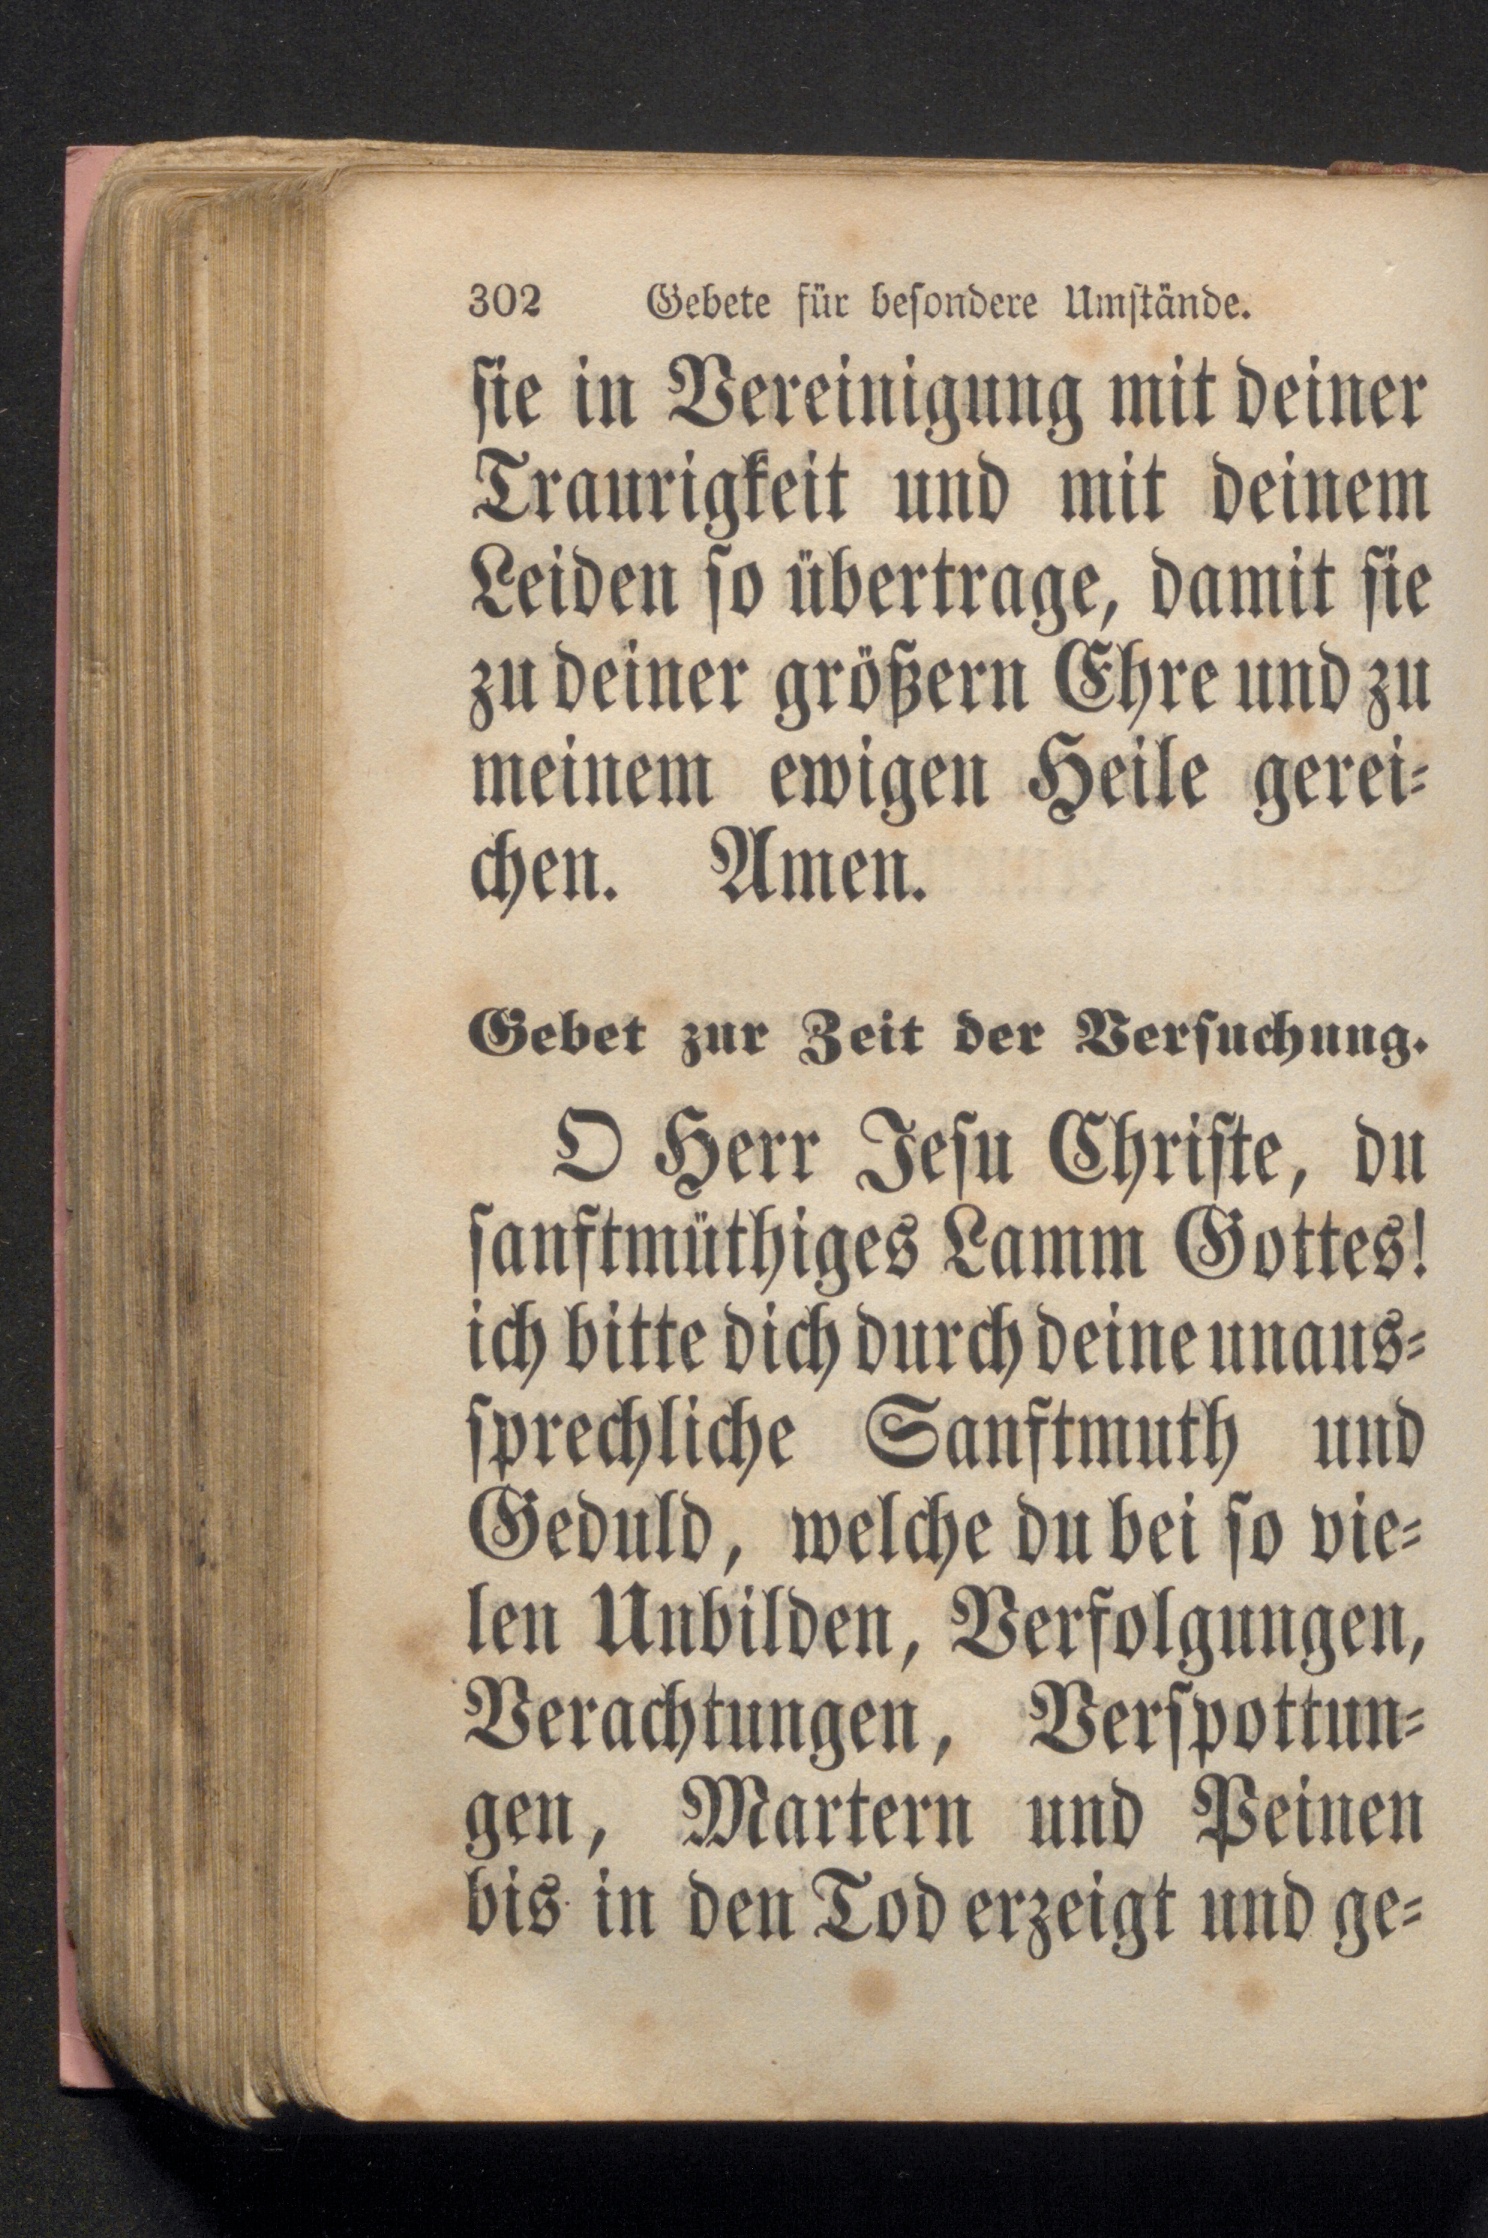 302 Gebete für beſondere Umſtände.
ſie in Vereinigung mit deiner
Traurigkeit und mit deinem
Leiden ſo übertrage, damit ſie
zu deiner größern Ehre und zu
meinem ewigen Heile gerei⸗
chen. Amen.
Gebet zur Zeit der Verſuchung.
O Herr Jeſu Chriſte, du
ſanftmüthiges Lamm Gottes!
ich bitte dich durch deine unaus⸗
ſprechliche Sanftmuth und
Geduld, welche du bei ſo vie⸗
len Unbilden, Verfolgungen,
Verachtungen, Verſpottun⸗
gen, Martern und Peinen
bis in den Tod erzeigt und ge⸗